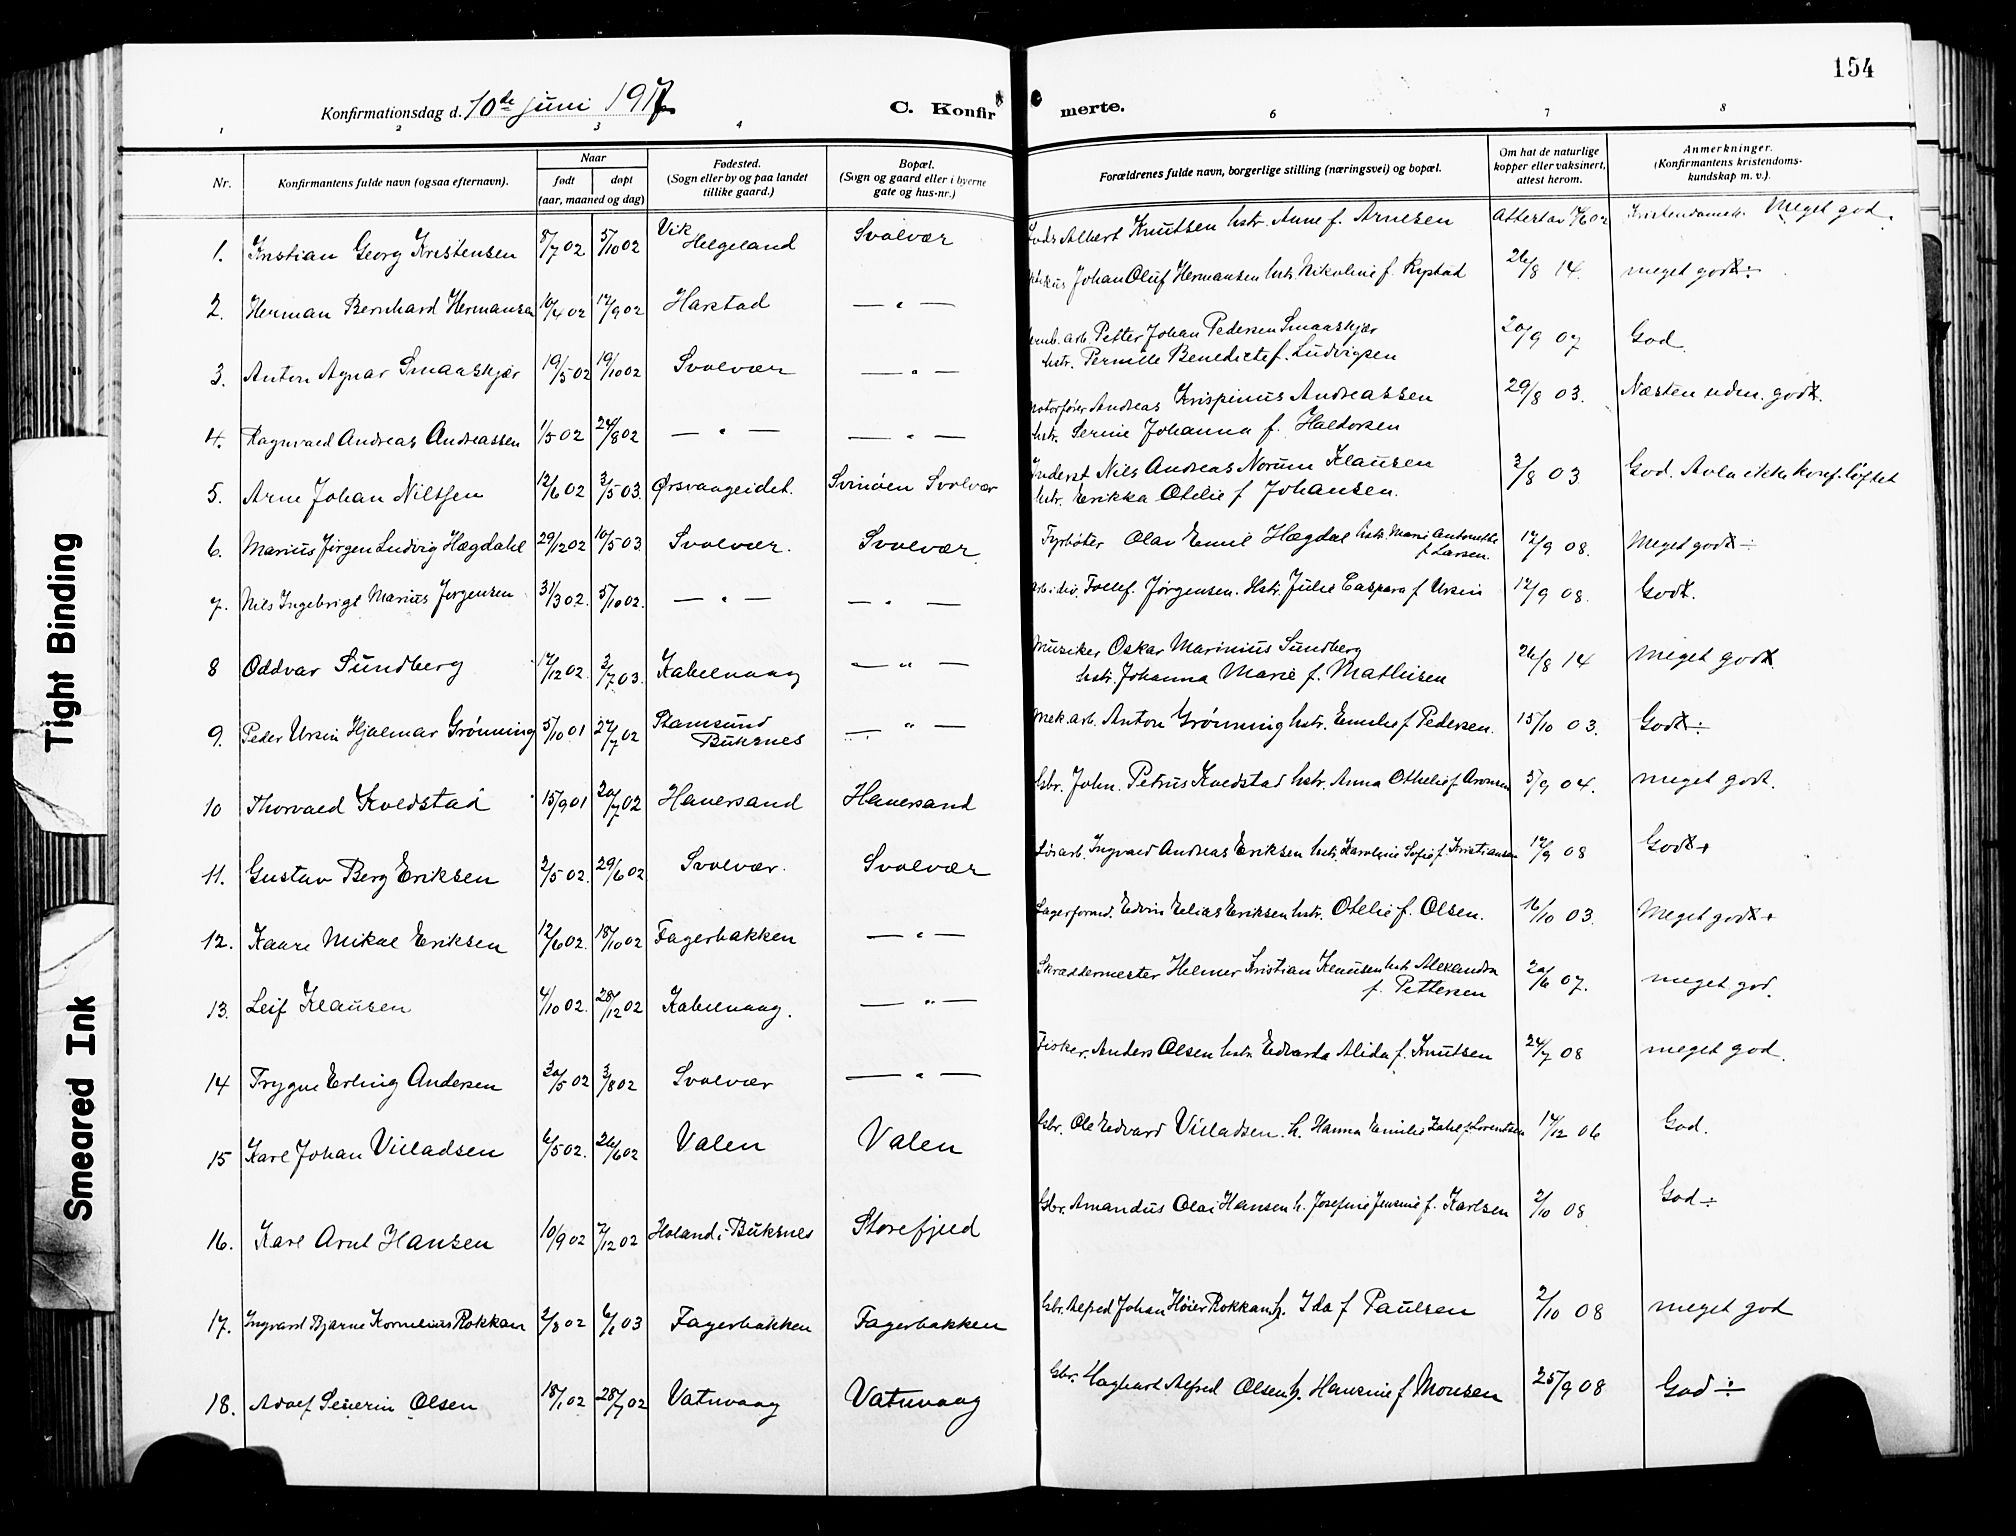 154
Konfirmationsdag d. 10de juni 1917.
C. Konfir merte.
1 2 3 4 6 7 8
Nr.
Konfirmantens fulde navn (ogsaa efternavn).
Naar
født døpt
(aar, maaned og dag)
Fødested.
(Sogn eller by og paa landet
tillike gaard.)
Bopæl.
(Sogn og gaard eller i byerne
gate og hus-nr.)
Forældrenes fulde navn, borgerlige stilling (næringsvei) og bopæl.
Om hat de naturlige
kopper eller vaksinert,
attest herom.
Anmerkninger.
(Konfirmantens kristendoms-
kundskap m. v.).
1. Kristian Georg Kristensen 8/7 02 5/10 02 Vik Helgeland Svolvær Albert Knutsen hstr. Anne f. Arnesen Kristendomsk. Meget god.
2. Herman Bernhard Hermansen 10/4 02 17/9 02 Harstad — " — Johan Oluf Hermansen hstr. Nikoline f. Rystad 26/8 14. meget godt ÷
3. Anton Agnar Smaaskjær 19/5 02 19/10 02 Svolvær — " — arb. Petter Johan Pedersen Smaaskjær
hstr. Pernille Benedicte f. Ludvigsen 20/9 07 God.
4. Ragnvald Andreas Andreassen 1/5 02 24/8 02 — " — — " — motorfører Andreas Krispinus Andreassen
hstr. Serine Johanna f. Haldorsen 29/8 03. Næsten uden. godt.
5. Arne Johan Nilsen 12/6 02 3/5 03. Ørsvaageidet. Svinøen Svolvær Inderst Nils Andreas Norum Klausen
hstr. Erikka Otelie f. Johansen. 3/8 03 God. Avla ikke konf. løftet
6. Marius Jørgen Ludvig Hægdahl 29/12 02 10/5 03. Svolvær. Svolvær. Fyrbøter Olav Emil Hægdal hstr. Marie Antonette
f. Larsen. 12/9 08. Meget godt ÷
7. Nils Ingebrigt Marius Jørgensen 31/3 02. 5/10 02. — " — — " — Tollef. Jørgensen. Hstr. Julie Caspara f. Ursin 12/9 08. Godt.
8 Oddvar Sundberg 17/12 02. 3/7 03. Kabelvaag — " — Musiker Oskar Marinius Sundberg
hstr. Johanna Marie f. Mathisen 26/8 14 Meget godt
9. Peder Ursin Hjalmar Grønning 5/10 01 27/7 02 Stamsund
Buksnes — " — Mek. arb. Anton Grønning hstr. Emilie f. Pedersen. 15/10 03. Godt ÷
10 Thorvald Kvedstad 15/9 01 20/7 02 Hanersand Hanersand Gbr. John. Petrus Kvedstad hstr. Anna Othelie f. Aronsen 5/9 04. meget godt.
11. Gustav Berg Eriksen 2/5 02. 29/6 02 Svolvær. Svolvær Løsarb. Ingvald Andreas Eriksen hstr. Karoline Sofie f. Kristiansen 12/9 08 Godt +
12. Kaare Mikal Eriksen 12/6 02. 18/10 02 Fagerbakken — " — Lagerformd. Edvin Elias Eriksen hstr. Otelie f. Olsen. 16/10 03. Meget godt +
13. Leif Klausen 4/10 02. 28/12 02 Kabelvaag. — " — Skræddermester Helmer Kristian Klausen hstr. Alexandra
f. Pettersen 20/6 07. meget god.
14 Trygve Erling Andersen 30/5 02 3/8 02 Svolvær — " — Fisker. Anders Olsen hstr. Edvarda Alida f. Knutsen 24/7 08 meget god.
15 Karl Johan Villadsen 6/5 02. 26/6 02 Valen Valen Gbr. Ole Edvard Villadsen. h. Hanna Emilie f. Lorentsen 17/12 06 God.
16. Karl Arnt Hansen 10/9 02 7/12 02 Holand i Buksnes Storefjeld Gbr. Amandus Olai Hansen h. Josefine Jensine f. Karlsen 2/10 08. God ÷
17. Ingvard Bjarne Kornelius Rokkan 2/8 02 6/1 03 Fagerbakken Fagerbakken Gbr. Alfred Johan Høier Rokkan h. Ida f. Paulsen 2/10 08 meget god
18. Adolf Severin Olsen 18/1 02 28/7 02 Vatnvaag Vatnvaag Gbr. Haghart Alfred Olsen h. Hansine f. Monsen 25/9 08 God ÷
Tight Binding
Smeared Ink